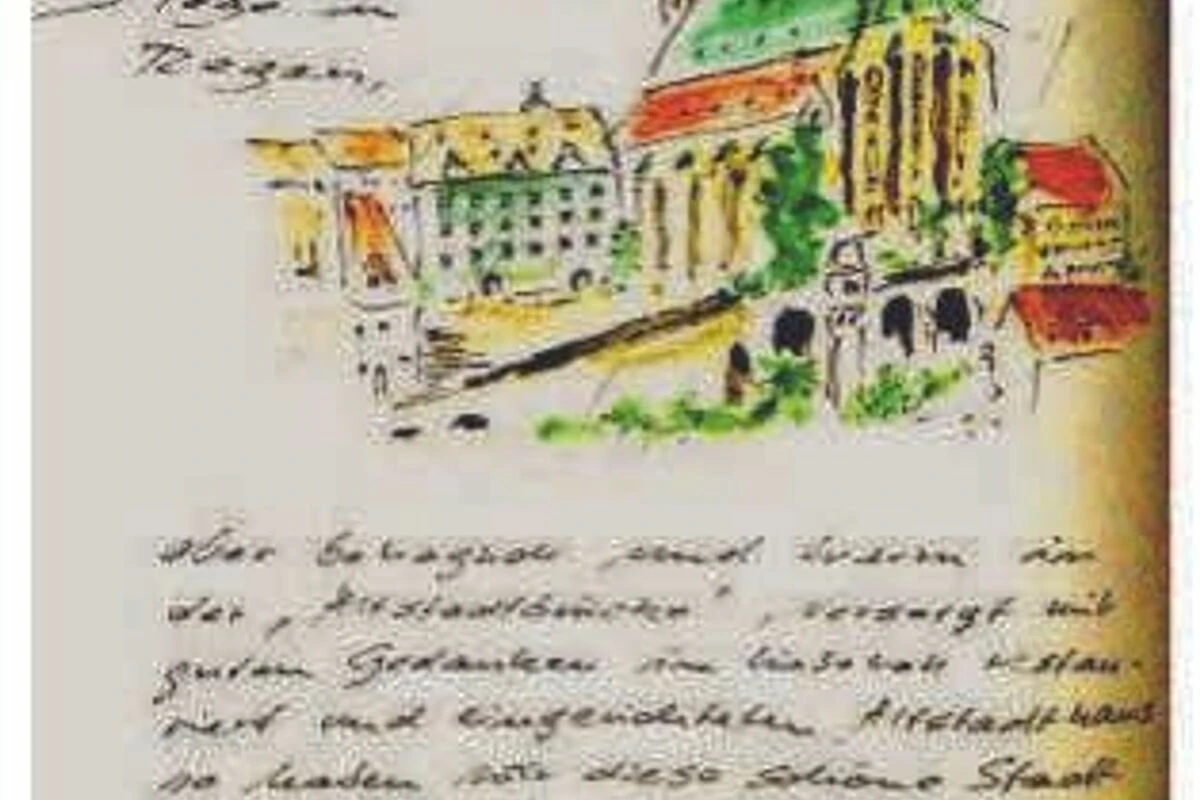 Tage im
Regen,
aber behagen und warm in
der "Altstadtbrücke", versorgt mit
guten Gedanken im restau-
riert und eingerichteten Altstadthaus
so haben wir diese schöne Stadt